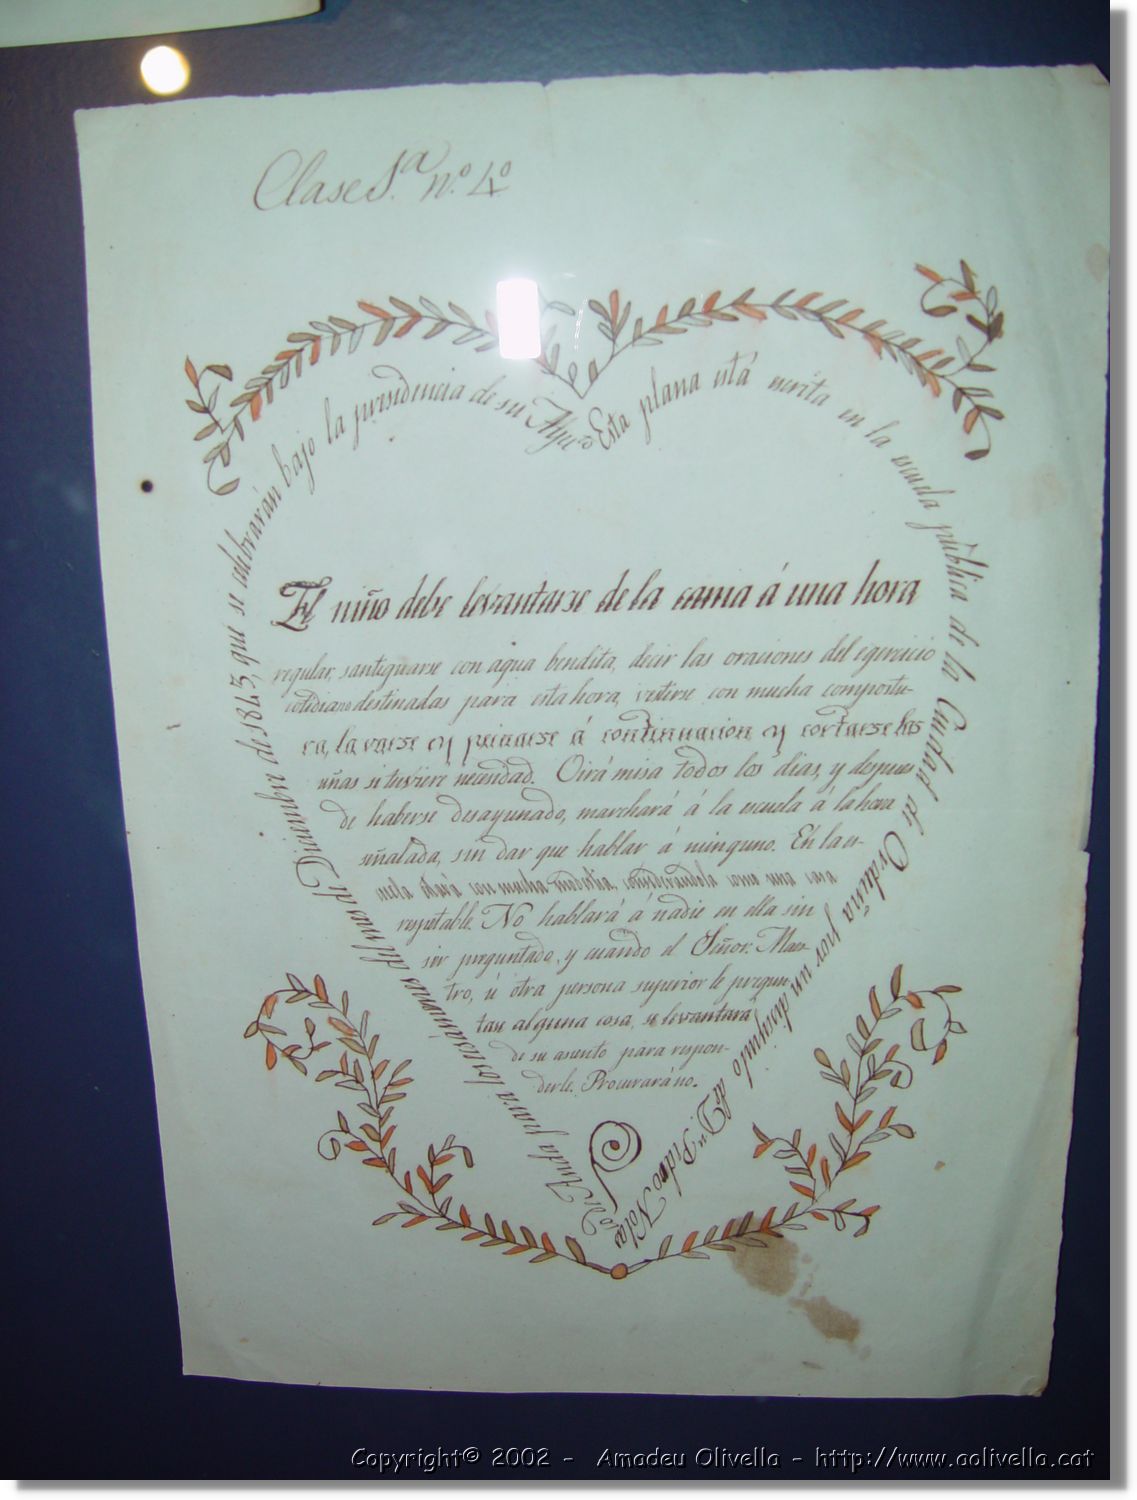 Clase 5.ª n.º 4.º
Esta plana está escrita en la escuela pública de la Ciudad de Orduña por un discípulo de D.n Pedro Nolas
co de Anda para los exámenes del mes de Diciembre de 1845, que se celebrarán bajo la presidencia de su Ayu.to
El niño debe levantarse de la cama á una hora
regular, santiguarse con agua bendita, decir las oraciones del egercicio
cotidiano destinadas para esta hora, vestirse con mucha compostu-
ra, lavarse y peinarse á continuacion y cortarse las
uñas si tuviere necesidad. Oirá misa todos los dias, y despues
de haberse desayunado, marchará á la escuela á la hora
señalada, sin dar que hablar á ninguno. En la es-
cuela estará con mucha modestia, considerandola como una casa
respetable. No hablará á nadie en ella sin
ser preguntado, y cuando el Señor Maes-
tro, ú otra persona superior le pregun-
tase alguna cosa, se levantará
de su asiento para respon-
derle. Procurará no.
Copyright© 2002 - Amadeu Olivella - http://www.aolivella.cat